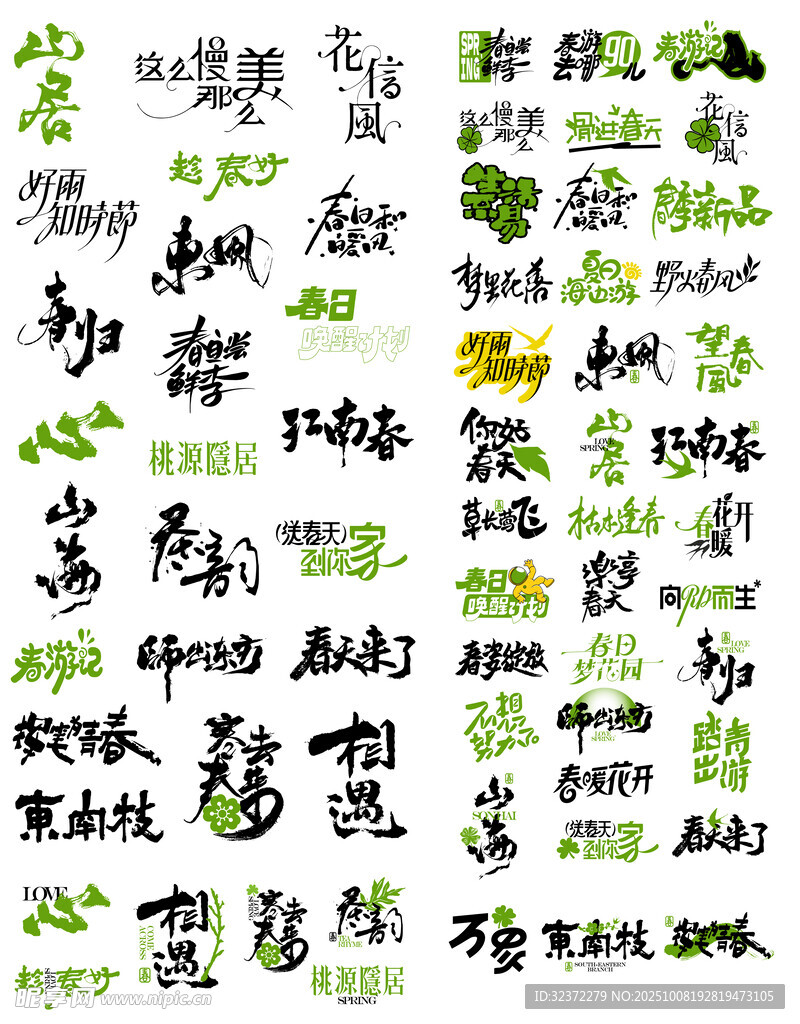 山居
这么慢那美么
花信風
好雨知時節
趁春好
春日和暖风
東風
春归
春日
唤醒计划
春日尝鲜季
江南春
心
桃源隱居
山海
茶韵
(送春天)
到你家
春游记
师出东方
春天来了
青春
寒去春来
相遇
東南枝
LOVE
心
趁春好
LOVE SPRING
相遇
COME ACROSS
寒去春来
LOVE SPRING
茶韵
TEA RHYME
桃源隱居
SPRING
SPRING
春日尝鲜季
春游去哪儿
go
春游记
这么慢那美么
滑进春天
花信風
生活易
春日和暖风
春季新品
梦里花落
夏日海边游
野火春风
好雨知時節
東風
望春風
你好春天
山居
LOVE SPRING
江南春
草长莺飞
枯木逢春
春暖花开
春日
唤醒计划
樂享春天
向up而生*
春姿绽放
春日梦花园
春归
LOVE SPRING
不想努力了
师出东方
LOVE SPRING
踏青出游
山海
SONHAI
春暖花开
(送春天)
到你家
春天来了
万象
東南枝
SOUTH-EASTERN BRANCH
青春
昵享网 www.nipic.cn
ID:32372279 NO:20251008192819473105